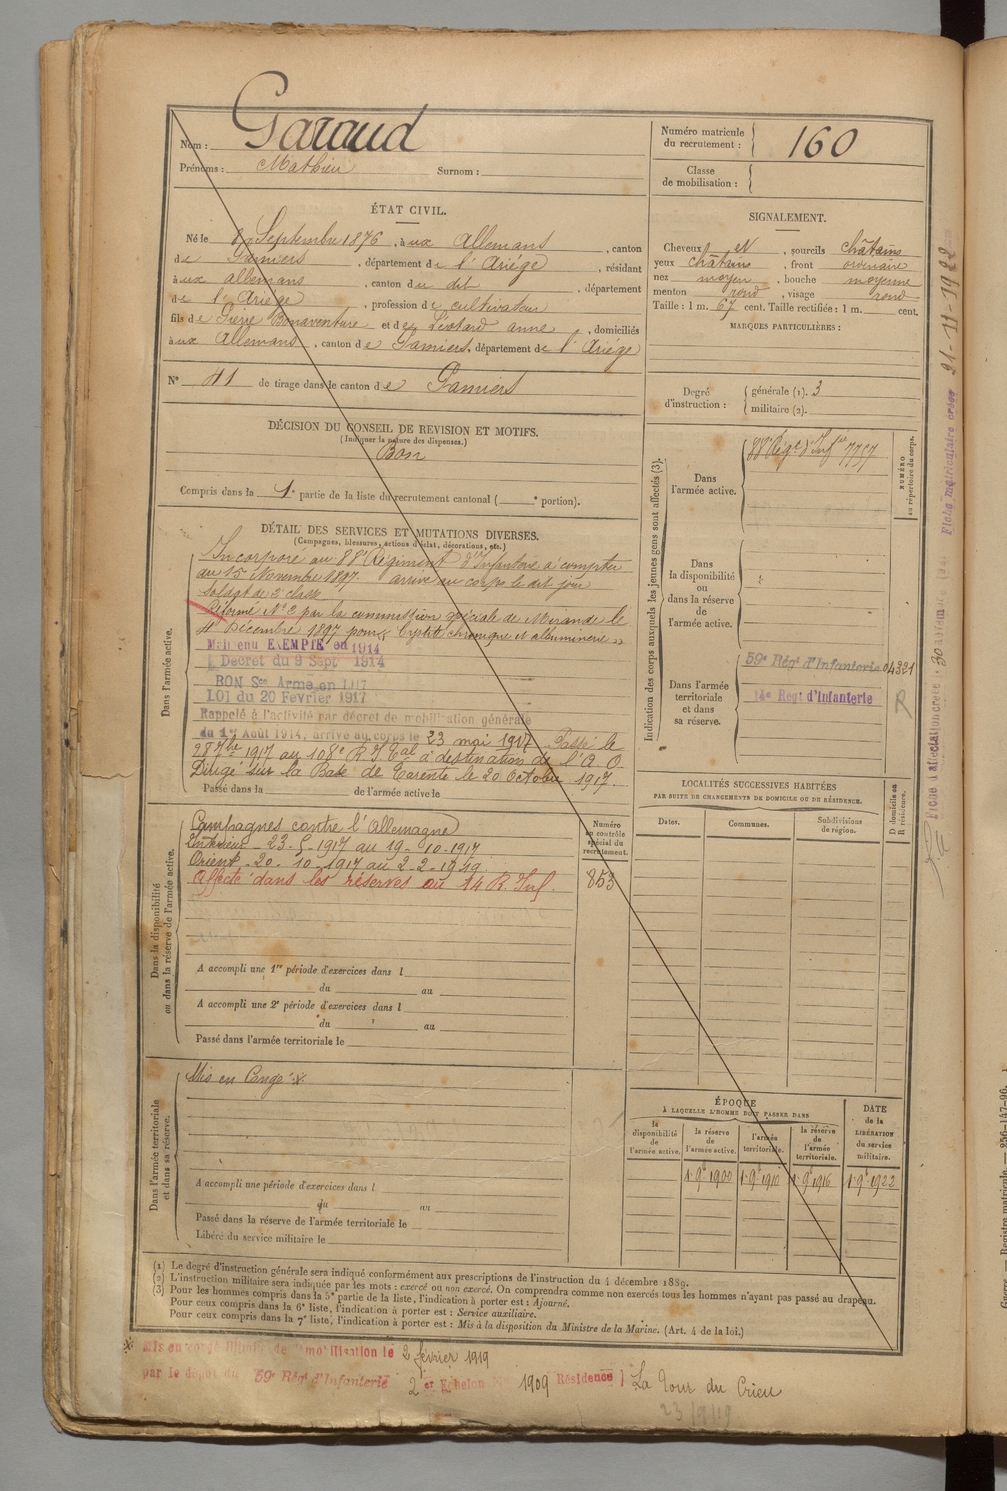 Nom : Garaud
Prénoms : Mathieu Surnom :
Numéro matricule du recrutement : 160
Classe de mobilisation :
ÉTAT CIVIL.
Né le Septembre 1876, à ux Allemans, canton
de Pamiers, département de l'Ariége, résidant
à ux allemans, canton du dit, département
de l'Ariége, profession de cultivateur
fils de Pierre Bonaventure et de Léotard anne, domiciliés
à ux Allemans, canton de Pamiers, département de l'Ariége
N° 41 de tirage dans le canton de Pamiers
SIGNALEMENT.
Cheveux et, sourcils châtains
yeux châtains, front ordinaire
nez moyen, bouche moyenne
menton rond, visage rond
Taille : 1 m. 67 cent. Taille rectifiée : 1 m. cent.
MARQUES PARTICULIÈRES :
Degré d'instruction : générale (1). 3
militaire (2).
DÉCISION DU CONSEIL DE REVISION ET MOTIFS.
(Indiquer la nature des dispenses.)
Bon
Compris dans la 1e partie de la liste du recrutement cantonal ( e portion).
DÉTAIL DES SERVICES ET MUTATIONS DIVERSES.
(Campagnes, blessures, actions d'éclat, décorations, etc.)
Dans l'armée active.
Incorporé au 88e Régiment d'Infanterie à compter
du 15 Novembre 1897. arrivé au corps le dit jour
soldat de 2e classe
Réformé N° 2 par la commission spéciale de Mirande le
4 Décembre 1897 pour chronique et albuminerie
Maintenu EXEMPTÉ en 1914
Décret du 9 Sept 1914
BON Sce Armé en 1917
LOI du 20 Fevrier 1917
Rappelé à l'activité par décret de mobilisation générale
du 1er Août 1914, arrivé au corps le 23 mai 1917 Passé le
28 7bre 1917 au 108e R I Eal à destination de l'A O
Dirigé sur la Base de Tarente le 20 Octobre 1917.
Passé dans la de l'armée active le
Dans la disponibilité ou dans la réserve de l'armée active.
Campagnes contre l'Allemagne
Intérieur 23-5-1917 au 19-10-1917
Orient 20-10-1917 au 2-2-1919.
Affecté dans les réserves au 14 R. Inf.
Numéro au contrôle spécial du recrutement.
853
A accompli une 1re période d'exercices dans l
du au
A accompli une 2e période d'exercices dans l
du au
Passé dans l'armée territoriale le
Dans l'armée territoriale et dans sa réserve.
Mis en Congé
A accompli une période d'exercices dans l
du au
Passé dans la réserve de l'armée territoriale le
Libéré du service militaire le
Indication des corps auxquels les jeunes gens sont affectés (3).
Dans l'armée active.
88e Régt d'Infie 7757
NUMÉRO au répertoire du corps.
Dans la disponibilité ou dans la réserve de l'armée active.
Dans l'armée territoriale et dans sa réserve.
59e Régt d'Infanterie 04321
14e Regt d'Infanterie
R
LOCALITÉS SUCCESSIVES HABITÉES
PAR SUITE DE CHANGEMENTS DE DOMICILE OU DE RÉSIDENCE.
D domicile ou R résidence.
Dates. Communes. Subdivisions de région.
ÉPOQUE
À LAQUELLE L'HOMME DOIT PASSER DANS
la disponibilité de l'armée active.
la réserve de l'armée active.
l'armée territoriale.
la réserve de l'armée territoriale.
DATE de la LIBÉRATION du service militaire.
1 9e 1900 1 9e 1910 1 9e 1916 1 9e 1922
(1) Le degré d'instruction générale sera indiqué conformément aux prescriptions de l'instruction du 4 décembre 1889.
(2) L'instruction militaire sera indiquée par les mots : exercé ou non exercé. On comprendra comme non exercés tous les hommes n'ayant pas passé au drapeau.
(3) Pour les hommes compris dans la 5e partie de la liste, l'indication à porter est : Ajourné.
Pour ceux compris dans la 6e liste, l'indication à porter est : Service auxiliaire.
Pour ceux compris dans la 7e liste, l'indication à porter est : Mis à la disposition du Ministre de la Marine. (Art. 4 de la loi.)
Mis en congé illimité de démobilisation le 2 février 1919
par le dépôt du 59e Régt d'Infanterie 2 er Echelon 1909 Résidence La Tour du Crieu
23/9/19
Fiche matriculaire créée 21-11-1922
Fiche d'affectation créée
Registre matricule. — 256-147-96.